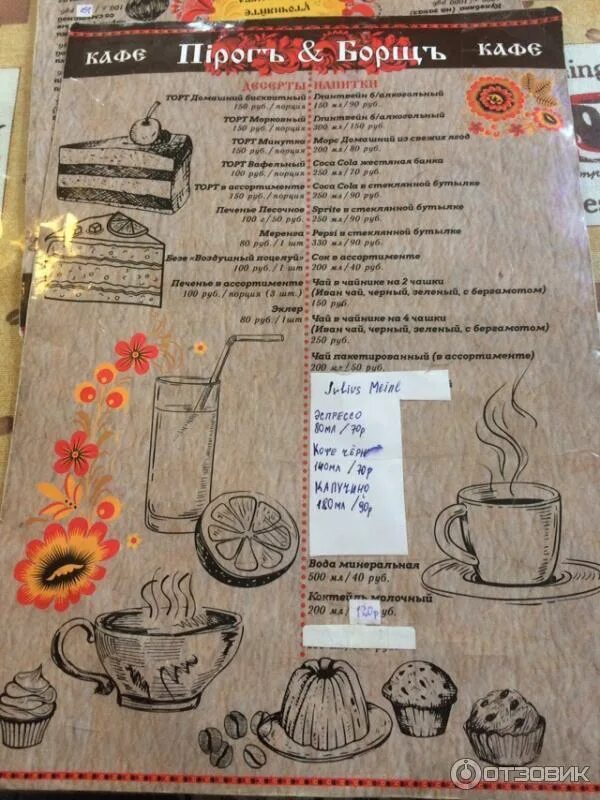 уточняйте
КАФЕ Пірогъ & Борщъ КАФЕ
ДЕСЕРТЫ
ТОРТ Домашний бисквитный
150 руб./порция
ТОРТ Морковный
150 руб./порция
ТОРТ Минутка
150 руб./порция
ТОРТ Вафельный
100 руб./порция
ТОРТ в ассортименте
150 руб./порция
Печенье Песочное
100 г/50 руб.
Меренга
80 руб./1 шт
Безе «Воздушный поцелуй»
100 руб./1 шт
Печенье в ассортименте
100 руб./порция (3 шт.)
Эклер
80 руб./1шт
НАПИТКИ
Глинтвейн б/алкогольный
150 мл/90 руб.
Глинтвейн б/алкогольный
300 мл/150 руб.
Морс Домашний из свежих ягод
200 мл/80 руб.
Coca Cola жестяная банка
250 мл/70 руб.
Coca Cola в стеклянной бутылке
250 мл/90 руб.
Sprite в стеклянной бутылке
250 мл/90 руб.
Pepsi в стеклянной бутылке
330 мл/90 руб.
Сок в ассортименте
200 мл/40 руб.
Чай в чайнике на 2 чашки
(Иван чай, черный, зеленый, с бергамотом)
150 руб.
Чай в чайнике на 4 чашки
(Иван чай, черный, зеленый, с бергамотом)
250 руб.
Чай пакетированный (в ассортименте)
200 мл/50 руб.
Julius Meinl
ЭСПРЕССО
80мл/70р
КОФЕ ЧЁРН
140мл/70р
КАПУЧИНО
180мл/90р
Вода минеральная
500 мл/40 руб.
Коктейль молочный
200 мл/120р уб.
ОТЗОВИК